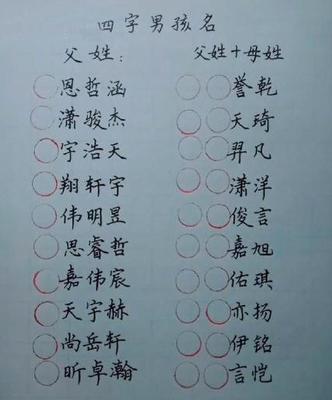 四字男孩名
父姓: 父姓+母姓
○恩哲涵 ○○誉乾
○潇骏杰 ○○天琦
○宇浩天 ○○羿凡
○翔轩宇 ○○潇洋
○伟明昱 ○○俊言
○思睿哲 ○○嘉旭
○嘉伟宸 ○○佑琪
○天宇赫 ○○亦扬
○尚岳轩 ○○伊铭
○昕卓瀚 ○○言恺